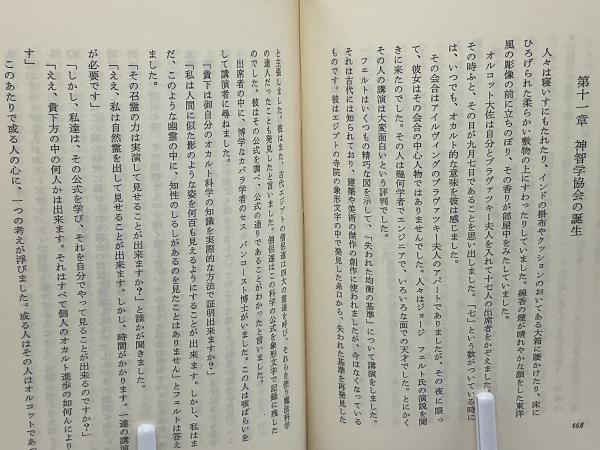 第十一章 神智学協会の誕生
人々は寝いすにもたれたり、インドの掛布やクッションのおいてある大箱に腰かけたり、床に
ひろげられた柔らかい敷物の上にすわったりしていました。線香の煙が晴れやかな顔をした東洋
風の彫像の前に立ちのぼり、その香りが部屋中をみたしていました。
オルコット大佐は自分とブラヴァツキー夫人を入れて十七人の出席者をかぞえました。
その時ふと、その日が九月七日であることを思い出しました。「七」という数がついている時に
は、いつでも、オカルト的な意味を彼は感じました。
その会合はアイルヴィングのブラヴァツキー夫人のアパートでありましたが、その夜に限っ
て、彼女はその会合の中心人物ではありませんでした。人々はジョージ フェルト氏の演説を聞
きに来たのでした。その人は幾何学者でエンジニアで、いろいろな面での天才でした。とにかく
その人の講演は大変面白いという評判でした。
フェルトはいくつもの精巧な図を示して、「失われた均衡の基準」について講演をしました。
それは古代には知られており、建築や美術の傑作の創作に使われましたが、今はなくなっている
ものです。彼はエジプトの寺院の象形文字の中で発見した糸口から、失われた基準を再発見した
168
と主張しました。彼はまた、古代エジプトの僧侶達は四大の霊達を呼び、それらを使う魔法科学
の達人だったことも発見したと言いました。僧侶達はこの科学の公式を象形文字で記録に残した
のでした。彼はその公式を調べ、公式の通りであることがわかったと言いました。
出席者の中に、博学なカバラ学者のセス パンコースト博士がいました。この人は咳ばらいを
して講演者に尋ねました。
「貴下は御自分のオカルト科学の知識を実際的な方法で証明出来ますか?」
「私は人間に似た影のような姿を何百も見えるようにすることが出来ます。しかし、私はま
だ、このような幽霊の中に、知性のしるしがあるのを見たことはありません」とフェルトは答え
ました。
「その召霊の力は実演して見せることが出来ますか?」と誰かが聞きました。
「ええ、私は自然霊を出して見せることが出来ます。しかし、時間がかかります。一連の講演
が必要です」
「しかし、私達は、その公式を学び、それを自分でやって見ることが出来るのですか?」
「ええ、貴下方の中の何人かは出来ます。それはすべて個人のオカルト進歩の如何によりま
す」
このあたりで或る人の心に、一つの考えが浮びました。或る人はその人はオルコットであ